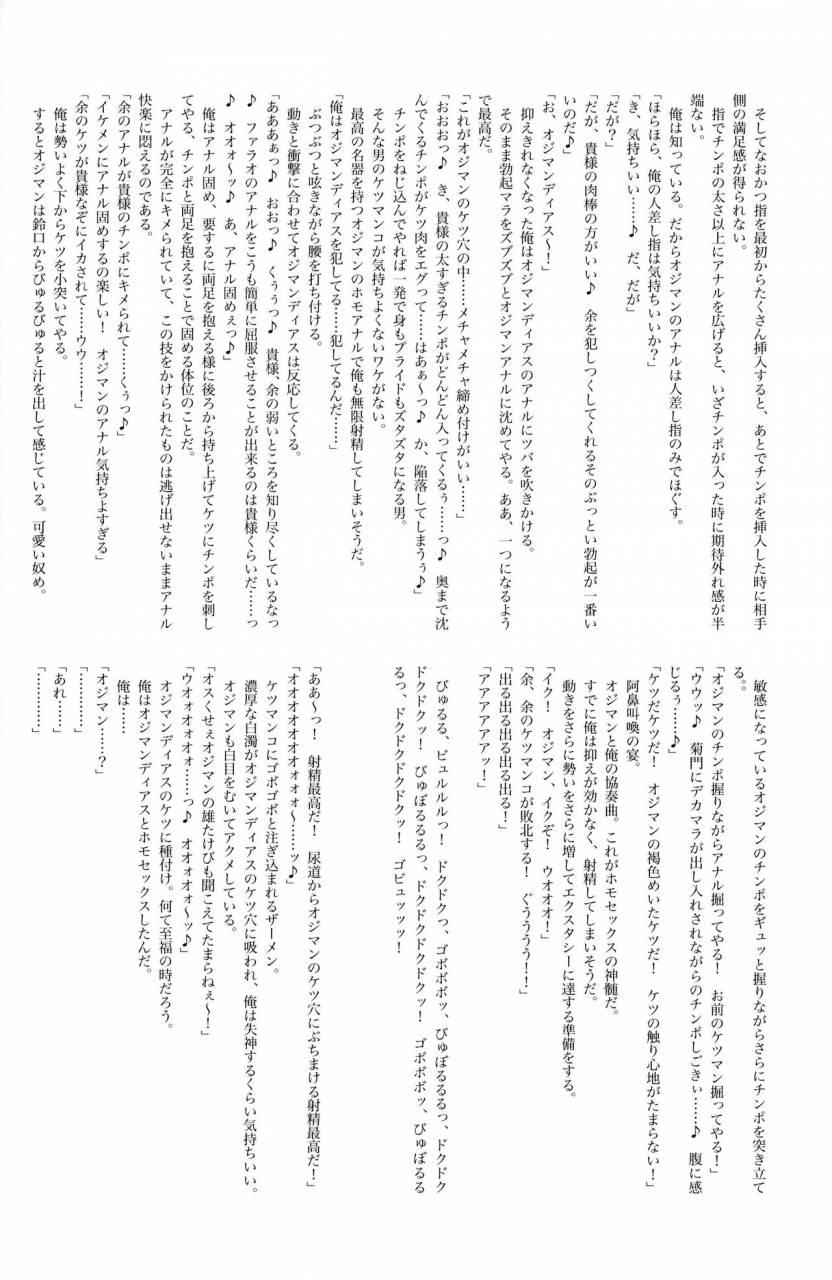 そしてなおかつ指を最初からたくさん挿入すると、あとでチンポを挿入した時に相手
側の満足感が得られない。
指でチンポの太さ以上にアナルを広げると、いざチンポが入った時に期待外れ感が半
端ない。
俺は知っている。だからオジマンのアナルは人差し指のみでほぐす。
「ほらほら、俺の人差し指は気持ちいいか？」
「き、気持ちいい……♪　だ、だが」
「だが？」
「だが、貴様の肉棒の方がいい♪　余を犯しつくしてくれるそのぶっとい勃起が一番い
いのだ♪」
「お、オジマンディアス～！」
抑えきれなくなった俺はオジマンディアスのアナルにツバを吹きかける。
そのまま勃起マラをズブズブとオジマンアナルに沈めてやる。ああ、一つになるよう
で最高だ。
「これがオジマンのケツ穴の中……メチャメチャ締め付けがいい……」
「おおおっ♪　き、貴様の太すぎるチンポがどんどん入ってくるぅ……っ♪　奥まで沈
んでくるチンポがケツ肉をエグって……はあぁ～っ♪　か、陥落してしまうぅ♪」
チンポをねじ込んでやれば一発で身もプライドもズタズタになる男。
そんな男のケツマンコが気持ちよくないワケがない。
最高の名器を持つオジマンのホモアナルで俺も無限射精してしまいそうだ。
「俺はオジマンディアスを犯してる……犯してるんだ……」
ぶつぶつと呟きながら腰を打ち付ける。
動きと衝撃に合わせてオジマンディアスは反応してくる。
「あああぁっ♪　おおっ♪　くぅぅっ♪　貴様、余の弱いところを知り尽くしているなっ
♪　ファラオのアナルをこうも簡単に屈服させることが出来るのは貴様くらいだ……っ
♪　オオォ～ッ♪　あ、アナル固めぇっ♪」
俺はアナル固め、要するに両足を抱える様に後ろから持ち上げてケツにチンポを刺し
てやる、チンポと両足を抱えることで固める体位のことだ。
アナルが完全にキメられていて、この技をかけられたものは逃げ出せないままアナル
快楽に悶えるのである。
「余のアナルが貴様のチンポにキメられて……くぅっ♪」
「イケメンにアナル固めするの楽しい！　オジマンのアナル気持ちよすぎる」
「余のケツが貴様なぞにイカされて……ウウ……！」
俺は勢いよく下からケツを小突いてやる。
するとオジマンは鈴口からびゅるびゅると汁を出して感じている。可愛い奴め。
敏感になっているオジマンのチンポをギュッと握りながらさらにチンポを突き立て
る。
「オジマンのチンポ握りながらアナル掘ってやる！　お前のケツマン掘ってやる！」
「ウウッ♪　菊門にデカマラが出し入れされながらのチンポしごきぃ……♪　腹に感
じるぅ……♪」
「ケツだケツだ！　オジマンの褐色めいたケツだ！　ケツの触り心地がたまらない！」
阿鼻叫喚の宴。
オジマンと俺の協奏曲。これがホモセックスの神髄だ。
すでに俺は抑えが効かなく、射精してしまいそうだ。
動きをさらに勢いをさらに増してエクスタシーに達する準備をする。
「イク！　オジマン、イクぞ！　ウオオオ！」
「余、余のケツマンコが敗北する！　ぐぅううう！！」
「出る出る出る出る出る！」
「アアアアアアッ！」
びゅるる、ビュルルルルっ！　ドクドクっ、ゴボボボッ、びゅぼるるるっ、ドクドク
ドクドクッ！　びゅぼるるるっ、ドクドクドクドクッ！　ゴボボボッ、びゅぼるる
るっ、ドクドクドクドクドクッ！　ゴビュッッッ！
「ああ～っ！　射精最高だ！　尿道からオジマンのケツ穴にぶちまける射精最高だ！」
「オオオオオオオォォォ～……ッ♪」
ケツマンコにゴボゴボと注ぎ込まれるザーメン。
濃厚な白濁がオジマンディアスのケツ穴に吸われ、俺は失神するくらい気持ちいい。
オジマンも白目をむいてアクメしている。
「オスくせぇオジマンの雄たけびも聞こえてたまらねぇ～！」
「ウオォオォオォ……っ♪　オオォオォ～ッ♪」
オジマンディアスのケツに種付け。何て至福の時だろう。
俺はオジマンディアスとホモセックスしたんだ。
俺は……
「オジマン……？」
「………」
「あれ……」
「………」